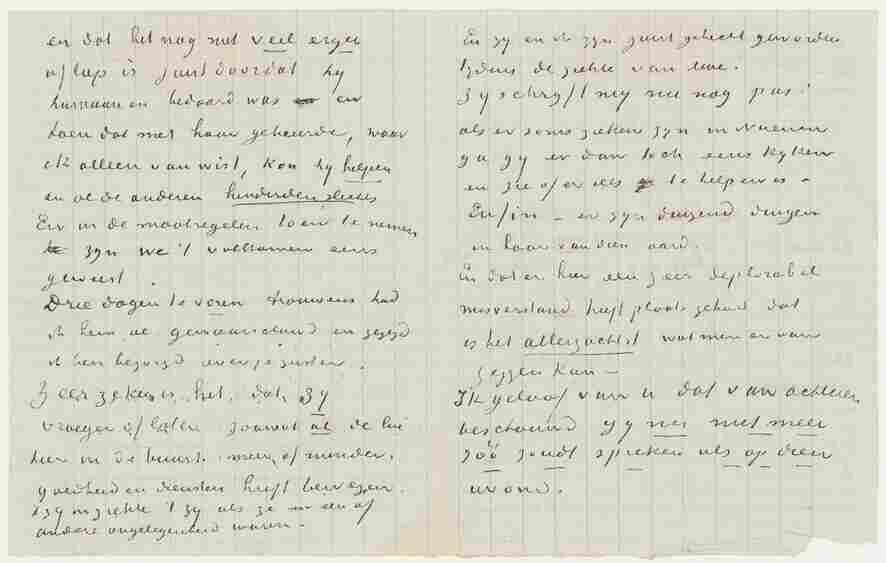 en dat het nog niet veel erger
afliep is juist doordat hy
humaan en bedaard was en
toen dat met haar gebeurde, waar
ik alleen van wist, kon hy helpen
en al de anderen hinderden slechts
En in de maatregelen toen te nemen
zyn we 't volkomen eens
geweest
Drie dagen te voren trouwens had
ik hem al gewaarschuwd en gezegd
ik ben bezorgd over je zuster.
Zeer zeker is het, dat zy
vroeger of later zoowat al de lui
hier in de buurt meer of minder
goedheid en diensten heeft bewezen.
't zy in ziekte 't zy als ze in een of
andere ongelegenheid waren.
En zy en ik zyn juist gehecht geworden
tydens de ziekte van moe.
Zy schryft my nu nog pas:
als er soms zieken zyn in Nuenen
ga gy er dan toch eens kyken
en zie of er iets te helpen is –
Enfin – er zyn duizend dingen
in haar van dien aard.
En dat er hier een zeer deplorabel
misverstand heeft plaats gehad dat
is het allerzachtst wat men er van
zeggen kan –
Ik geloof van u dat van achteren
beschouwd gy nu niet meer
zóó zoudt spreken als op dien
avond.